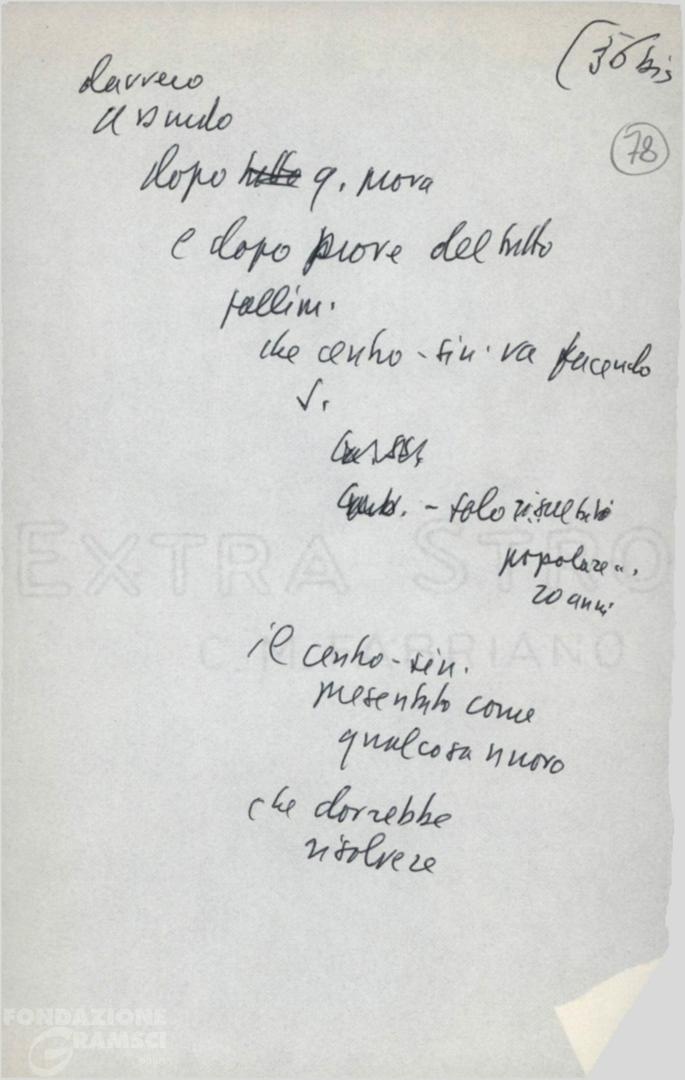 (36 bis
78
davvero
assurdo
dopo tutto q. prova
e dopo prove del tutto
fallim.
che centro-sin. va facendo
V.
- solo risultato
popolare..
20 anni
il centro-sin.
presentato come
qualcosa nuovo
che dovrebbe
risolvere
EXTRA STRO
C.M. FABRIANO
FONDAZIONE
GRAMSCI